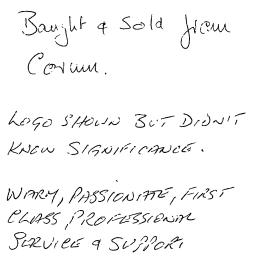 Bought & Sold from
Corum.
LOGO SHOWN BUT DIDN'T
KNOW SIGNIFICANCE.
WARM, PASSIONATE, FIRST
CLASS, PROFESSIONAL
SERVICE & SUPPORT